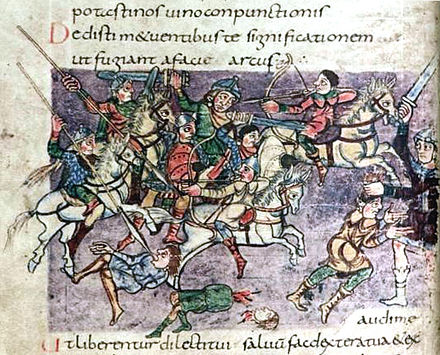 potasti nos uino conpunctionis
Dedisti m&uentibus te significationem
ut fugiant a facie arcus
audi me
Ut liberentur dilecti tui saluum fac dextera tua & ex